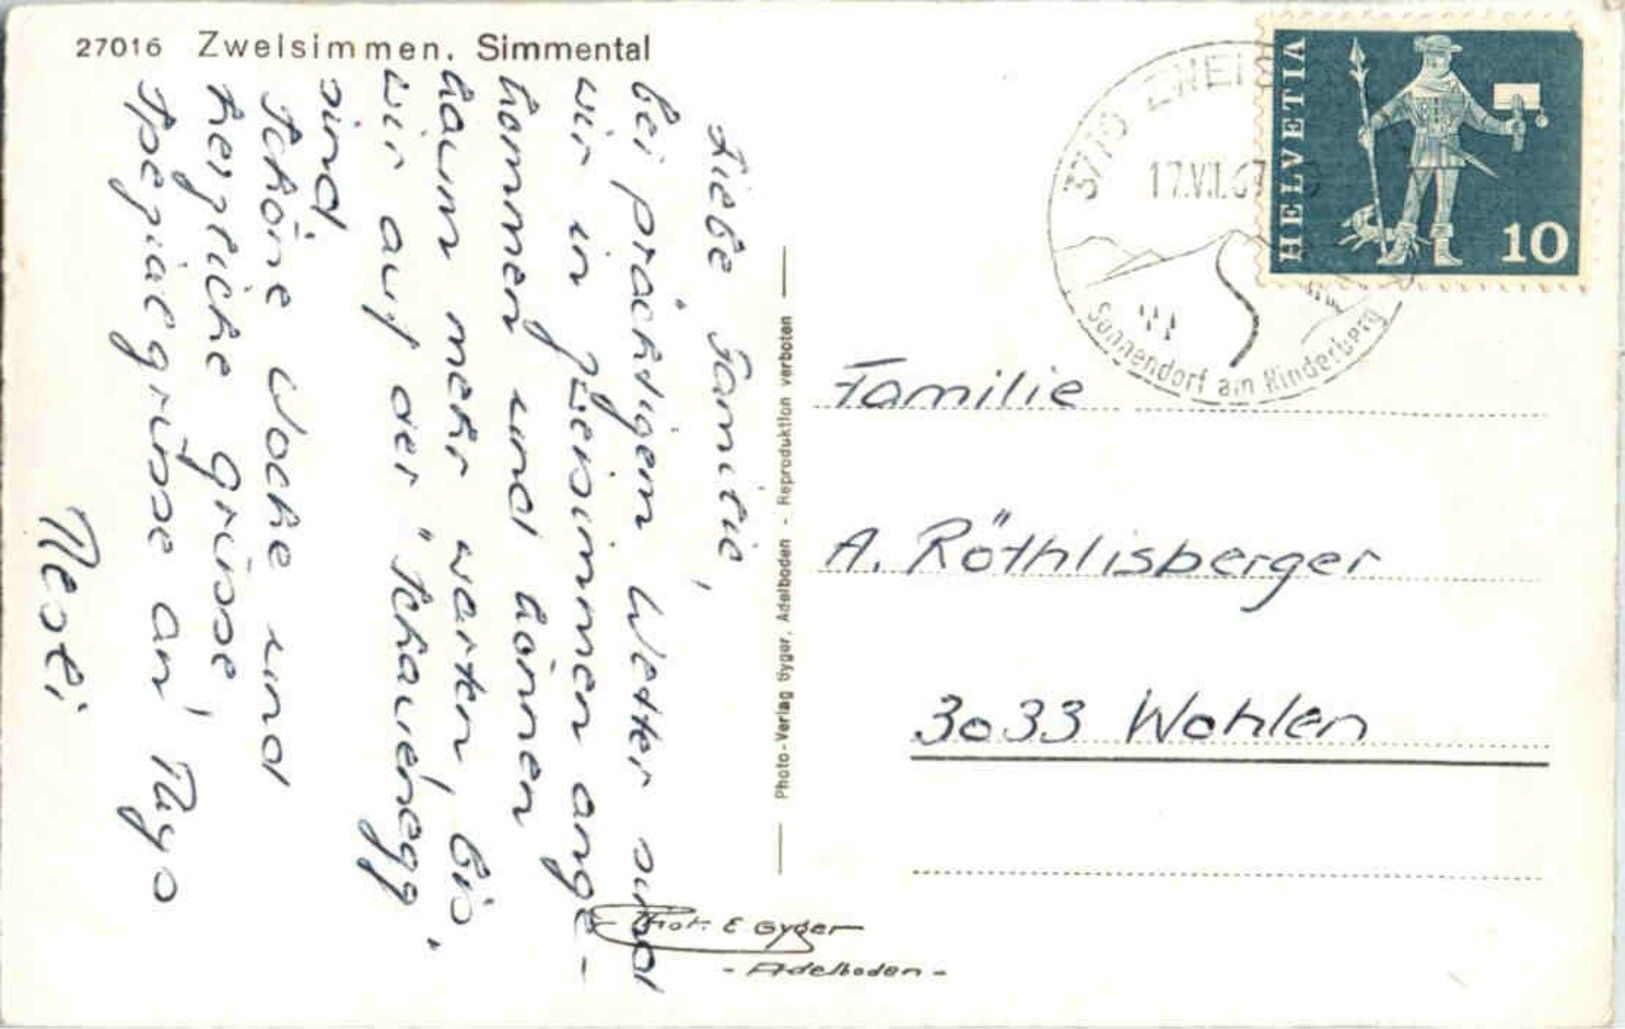 27016 Zweisimmen. Simmental
Liebe Familie,
bei prächtigem Wetter sind
wir in Zweisimmen ange-
kommen und können
kaum mehr warten, bis
wir auf der "Schauenegg"
sind
Schöne Woche und
herzliche grüsse
Spezialgrüsse an
Photo-Verlag Gyger, Adelboden - Reproduktion verboten
Phot. E Gyger
- Adelboden -
3770 ZWEI
17.VII.67
Sonnendorf am Rinderberg
HELVETIA
10
Familie
A. Röthlisberger
3033 Wohlen